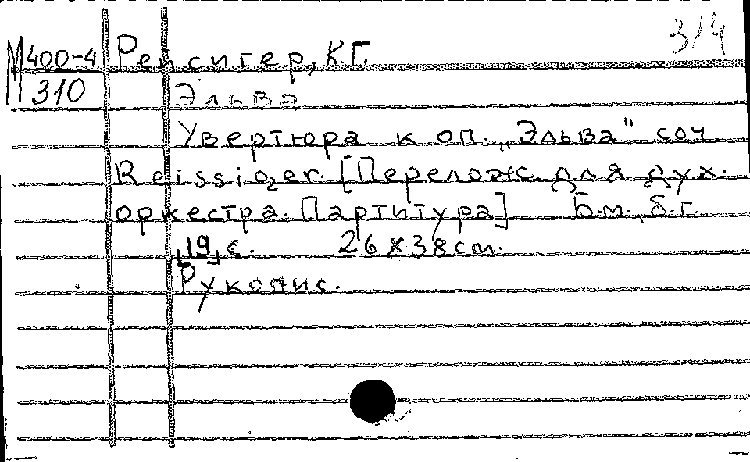 3/4
М400-4 Рейсигер, К.Г.
310 Эльва
Увертюра к оп. „Эльва" соч
Reissiger. [Перелож. для дух.
оркестра. Партитура] Б.м., б.г.
[19] с. 26x38 см.
Рукопис.